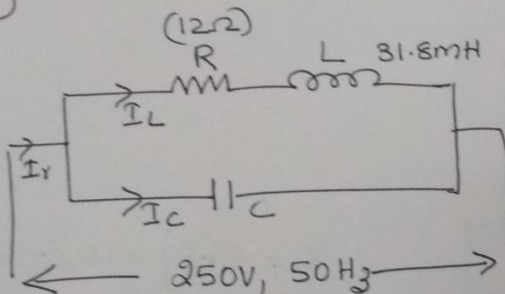 (12Ω)
R
L 31.8mH
IL
Ir
Ic
C
250V, 50Hz